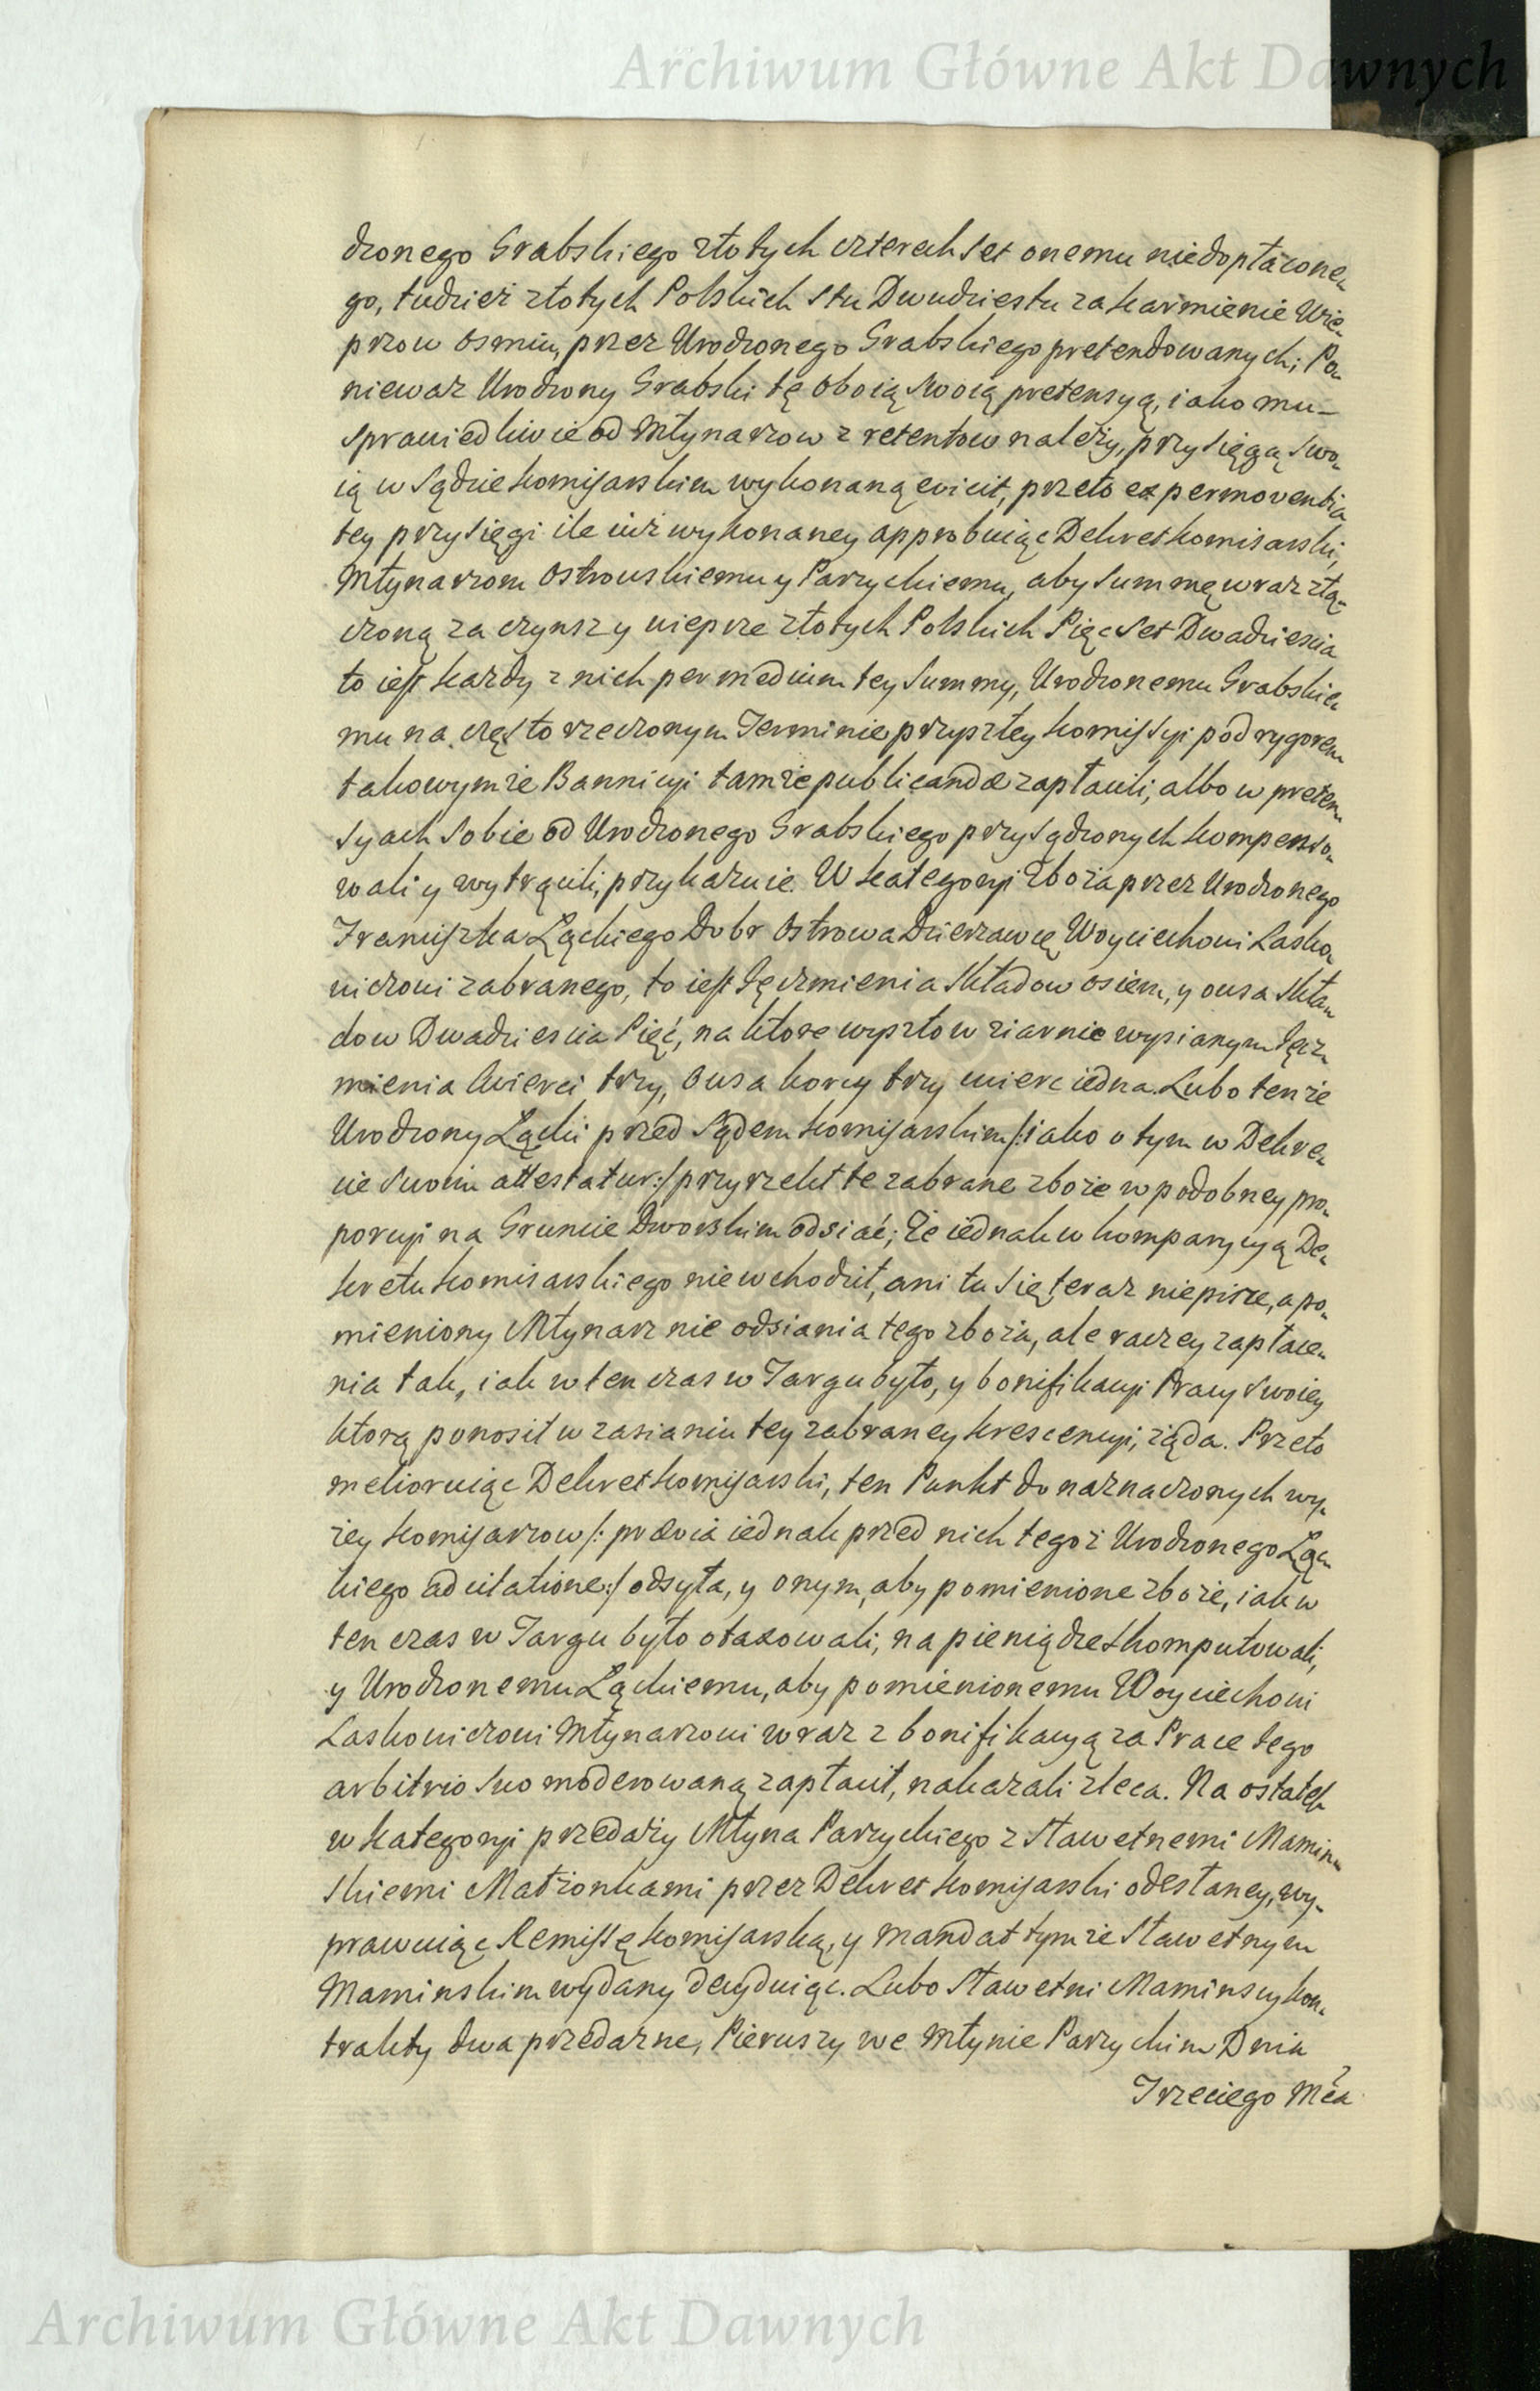 Archiwum Główne Akt Dawnych
dzonego Grabskiego złotych czterech set onemu niedopłacone-
go, tudzież złotych Polskich stu Dwudziestu za karmienie Wie-
przow osmiu, przez Urodzonego Grabskiego pretendowanych; Po-
nieważ Urodzony Grabski tę oboią swoią pretensyą, iako mu-
sprawiedliwie od Młynarzow z retentow należy, przysięgą swo-
ią w Sądzie Komisarskim wykonaną evicit, przeto ex permoventia
tey przysięgi ile iuż wykonaney approbuiąc Dekret Komisarski,
Młynarzom Ostrowskiemu y Parzyckiemu, aby summę wraz złą-
czoną za czynsz y wieprze złotych Polskich Pięć set Dwadziescia
to iest każdy z nich per medium tey Summy, Urodzonemu Grabskie-
mu na często rzeczonym Terminie przyszłey Komissyi pod rygorem
takowymże Bannicyi tamże publicandæ zapłacili, albo w preten-
syach sobie od Urodzonego Grabskiego przysądzonych kompenso-
wali y wytrącili, przykazuie. W kategoryi Zboża przez Urodzonego
Franciszka Łąckiego Dobr Ostrowa Dzierzawcę Woyciechowi Lasko-
wiczowi zabranego, to iest Jęczmienia składow osiem, y owsa skła-
dow Dwadziescia Pięć, na ktore wyszło w ziarnie wysianym Jęcz-
mienia ćwierci trzy, Owsa korcy trzy cwierc iedna. Lubo tenże
Urodzony Łącki przed Sądem Komisarskim /: iako o tym w Dekre-
cie swoim attestatur :/ przyrzekł te zabrane zboże w podobney pro-
porcyi na Gruncie Dworskim odsiać; Że iednak w komparycyą De-
kretu Komisarskiego nie wchodził, ani tu się teraz niepisze, a po-
mieniony Młynarz nie odsiania tego zboża, ale raczey zapłace-
nia tak, iak w ten czas w Targu było, y bonifikacyi Pracy swoiey
ktorą ponosił w zasianiu tey zabraney krescencyi, żąda. Przeto
melioruiąc Dekret Komisarski, ten Punkt do naznaczonych wy-
żey Komisarzow /: prævia iednak przed nich tegoż Urodzonego Łąc-
kiego adcitatione :/ odsyła, y onym, aby pomienione zboże, iak w
ten czas w Targu było otaxowali, na pieniądze skomputowali,
y Urodzonemu Łąckiemu, aby pomienionemu Woyciechowi
Laskowiczowi Młynarzowi wraz z bonifikacyą za Prace tego
arbitrio suo moderowaną zapłacił, nakazali zleca. Na ostatek
w kategoryi przedaży Młyna Parzyckiego z Sławetnemi Mamin-
skiemi Małżonkami przez Dekret Komisarski odesłaney, wy-
prawuiąc Remissę Komisarską, y mandat tymże Sławetnym
Maminskim wydany decyduiąc. Lubo Sławetni Maminscy kon-
trakty dwa przedażne, Pierwszy we Młynie Parzyckim Dnia
Trzeciego Mca
Archiwum Główne Akt Dawnych